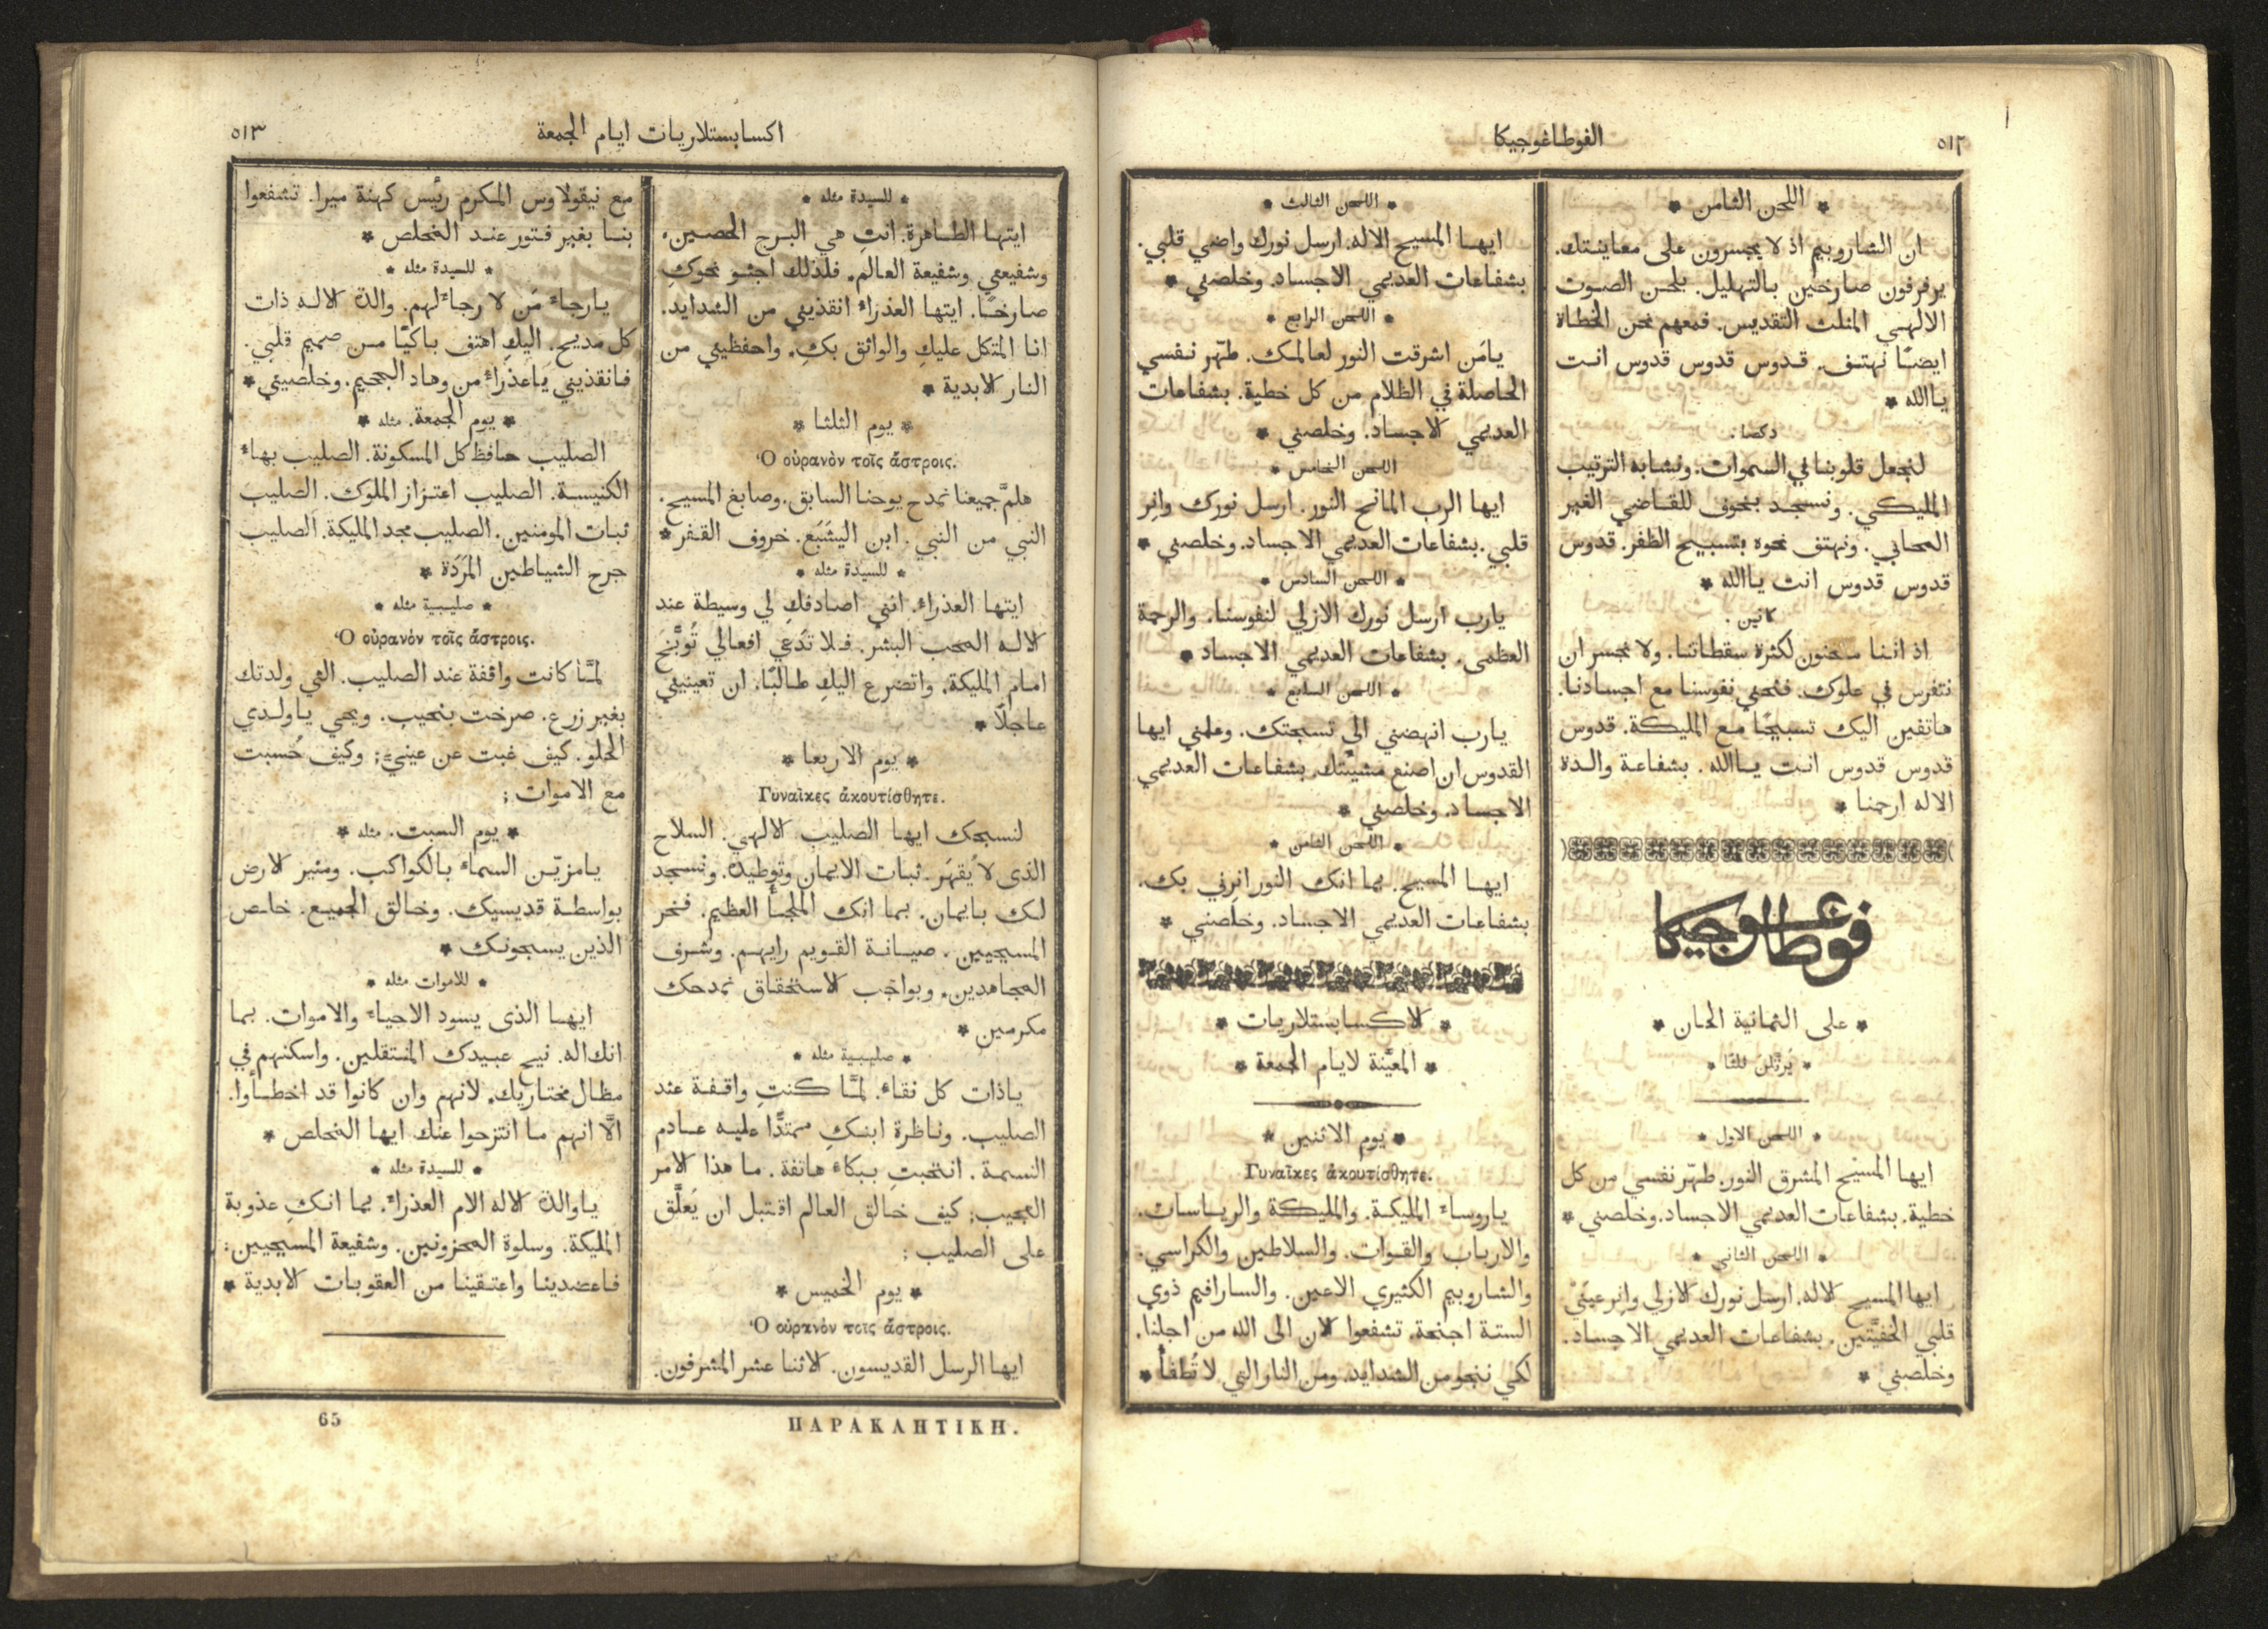 ٥١٢
الفوطاغوجيكا
* اللحن الثامن *
ان الشاروبيم اذ لا يجسرون على معاينتك.
يرفرفون صارخين بالتهليل. بلحن الصوت
الالهي المثلث التقديس. فمعهم نحن الخطاة
ايضًا نهتف. قدوس قدوس قدوس انت
ياالله *
ذكصا.
لنجعل قلوبنا في السموات. ونشابه الترتيب
المليكي. ونسجد بخوف للقاضي الغير
المحابي. ونهتف نحوه بتسبيح الظفر. قدوس
قدوس قدوس انت ياالله *
كانين.
اذ اننا منحنون لكثرة سقطاتنا. ولا نجسر ان
نتفرس في علوك. فنحني نفوسنا مع اجسادنا.
هاتفين اليك تسبيحًا مع المليكة. قدوس
قدوس قدوس انت ياالله. بشفاعة والدة
الاله ارحمنا *
فوطاغوجيكا
* على الثمانية الحان *
* يُرتَّلنَ ثلثًا *
* اللحن الاول *
ايها المسيح المشرق النور. طهّر نفسي من كل
خطية. بشفاعات العديمي الاجساد. وخلصني *
* اللحن الثاني *
ايها المسيح الاله. ارسل نورك الازلي وانر عينَيْ
قلبي الخفيَّتين. بشفاعات العديمي الاجساد.
وخلصني *
* اللحن الثالث *
ايها المسيح الاله. ارسل نورك واضي قلبي.
بشفاعات العديمي الاجساد. وخلصني *
* اللحن الرابع *
يامَن اشرقت النور لعالمك. طهّر نفسي
الحاصلة في الظلام من كل خطية. بشفاعات
العديمي الاجساد. وخلصني *
اللحن الخامس *
ايها الرب المانح النور. ارسل نورك وانِر
قلبي. بشفاعات العديمي الاجساد. وخلصني *
* اللحن السادس *
يارب ارسل نورك الازلي لنفوسنا. والرحمة
العظمى. بشفاعات العديمي الاجساد *
* اللحن السابع *
يارب انهضني الى تسبحتك. وعلمني ايها
القدوس ان اصنع مشيئتك. بشفاعات العديمي
الاجساد. وخلصني *
* اللحن الثامن *
ايها المسيح. بما انك النور انِرني بك.
بشفاعات العديمي الاجساد. وخلصني *
* الاكسابستلاريات *
* المعيَّنة لايام الجمعة *
* يوم الاثنين *
Γυναῖκες ἀκουτίσθητε.
ياروساء المليكة. والمليكة والرياسات.
والارباب والقوات. والسلاطين والكراسي.
والشاروبيم الكثيري الاعين. والسارافيم ذوي
الستة اجنحة. تشفعوا الان الى الله من اجلنا.
لكي ننجو من الشدايد. ومن النار التي لا تُطفأ *
اكسابستلاريات ايام الجمعة
٥١٣
* للسيدة مثله *
ايتها الطاهرة. انتِ هي البرج الحصين.
وشفيعتي وشفيعة العالم. فلذلك اجثو نحوكِ
صارخًا. ايتها العذراء انقذيني من الشدايد.
انا المتكل عليكِ والواثق بكِ. واحفظيني من
النار الابدية *
* يوم الثلثا *
Ὁ οὐρανὸν τοῖς ἄστροις.
هلمَّ جميعنا نمدح يوحنا السابق. وصابغ المسيح.
النبي من النبي. ابن اليشَبَع. خروف القفر *
* للسيدة مثله *
ايتها العذراء. انني اصادفكِ لي وسيطة عند
الاله المحب البشر. فلا تدَعي افعالي تُوبَّخ
امام المليكة. واتضرع اليكِ طالبًا. ان تعينيني
عاجلًا *
* يوم الاربعا *
Γυναῖκες ἀκουτίσθητε.
لنسبحك ايها الصليب الالهي. السلاح
الذى لا يُقهَر. ثبات الايمان وتوطيده. ونسجد
لك بايمان. بما انك الملجأ العظيم. فخر
المسيحيين. صيانة القويم رايهم. وشرف
المجاهدين. وبواجب الاستحقاق نمدحك
مكرمين *
* صليبية مثله *
ياذات كل نقاء. لمَّا كنتِ واقفة عند
الصليب. وناظرة ابنكِ ممتدًّا عليه عادم
النسمة. انتحبت ببكاء هاتفة. ما هذا الامر
العجيب; كيف خالق العالم اقتبل ان يَعلَّق
على الصليب ;
* يوم الخميس *
Ὁ οὐρανὸν τοῖς ἄστροις.
ايها الرسل القديسون. الاثنا عشر المشرفون.
مع نيقولاوس المكرم رئيس كهنة ميرا. تشفعوا
بنا بغير فتور عند المخلص *
* للسيدة مثله *
يارجاء مَن لا رجاء لهم. والدة الاله ذات
كل مديح. اليكِ اهتف باكيًا من صميم قلبي.
فانقذيني ياعذراء من وهاد الجحيم. وخلصيني *
* يوم الجمعة. مثله *
الصليب حافظ كل المسكونة. الصليب بهاء
الكنيسة. الصليب اعتزاز الملوك. الصليب
ثبات المومنين. الصليب مجد المليكة. الصليب
جرح الشياطين المرَدَة *
* صليبية مثله *
Ὁ οὐρανὸν τοῖς ἄστροις.
لمَّا كانت واقفة عند الصليب. التي ولدتك
بغير زرع. صرخت بنحيب. ويحي ياولدي
الحلو. كيف غبت عن عينيَّ; وكيف حُسبت
مع الاموات ;
* يوم السبت. مثله *
يامزيّن السماء بالكواكب. ومنير الارض
بواسطة قديسيك. وخالق الجميع. خلص
الذين يسبحونك *
* للاموات مثله *
ايها الذى يسود الاحياء والاموات. بما
انك اله. نيح عبيدك المنتقلين. واسكنهم في
مظال مختاريك. لانهم وان كانوا قد اخطأوا.
الَّا انهم ما انتزحوا عنك ايها المخلص *
* للسيدة مثله *
ياوالدة الاله الام العذراء. بما انكِ عذوبة
المليكة. وسلوة المحزونين. وشفيعة المسيحيين:
فاعضدينا واعتقينا من العقوبات الابدية *
ΠΑΡΑΚΛΗΤΙΚΗ.
65